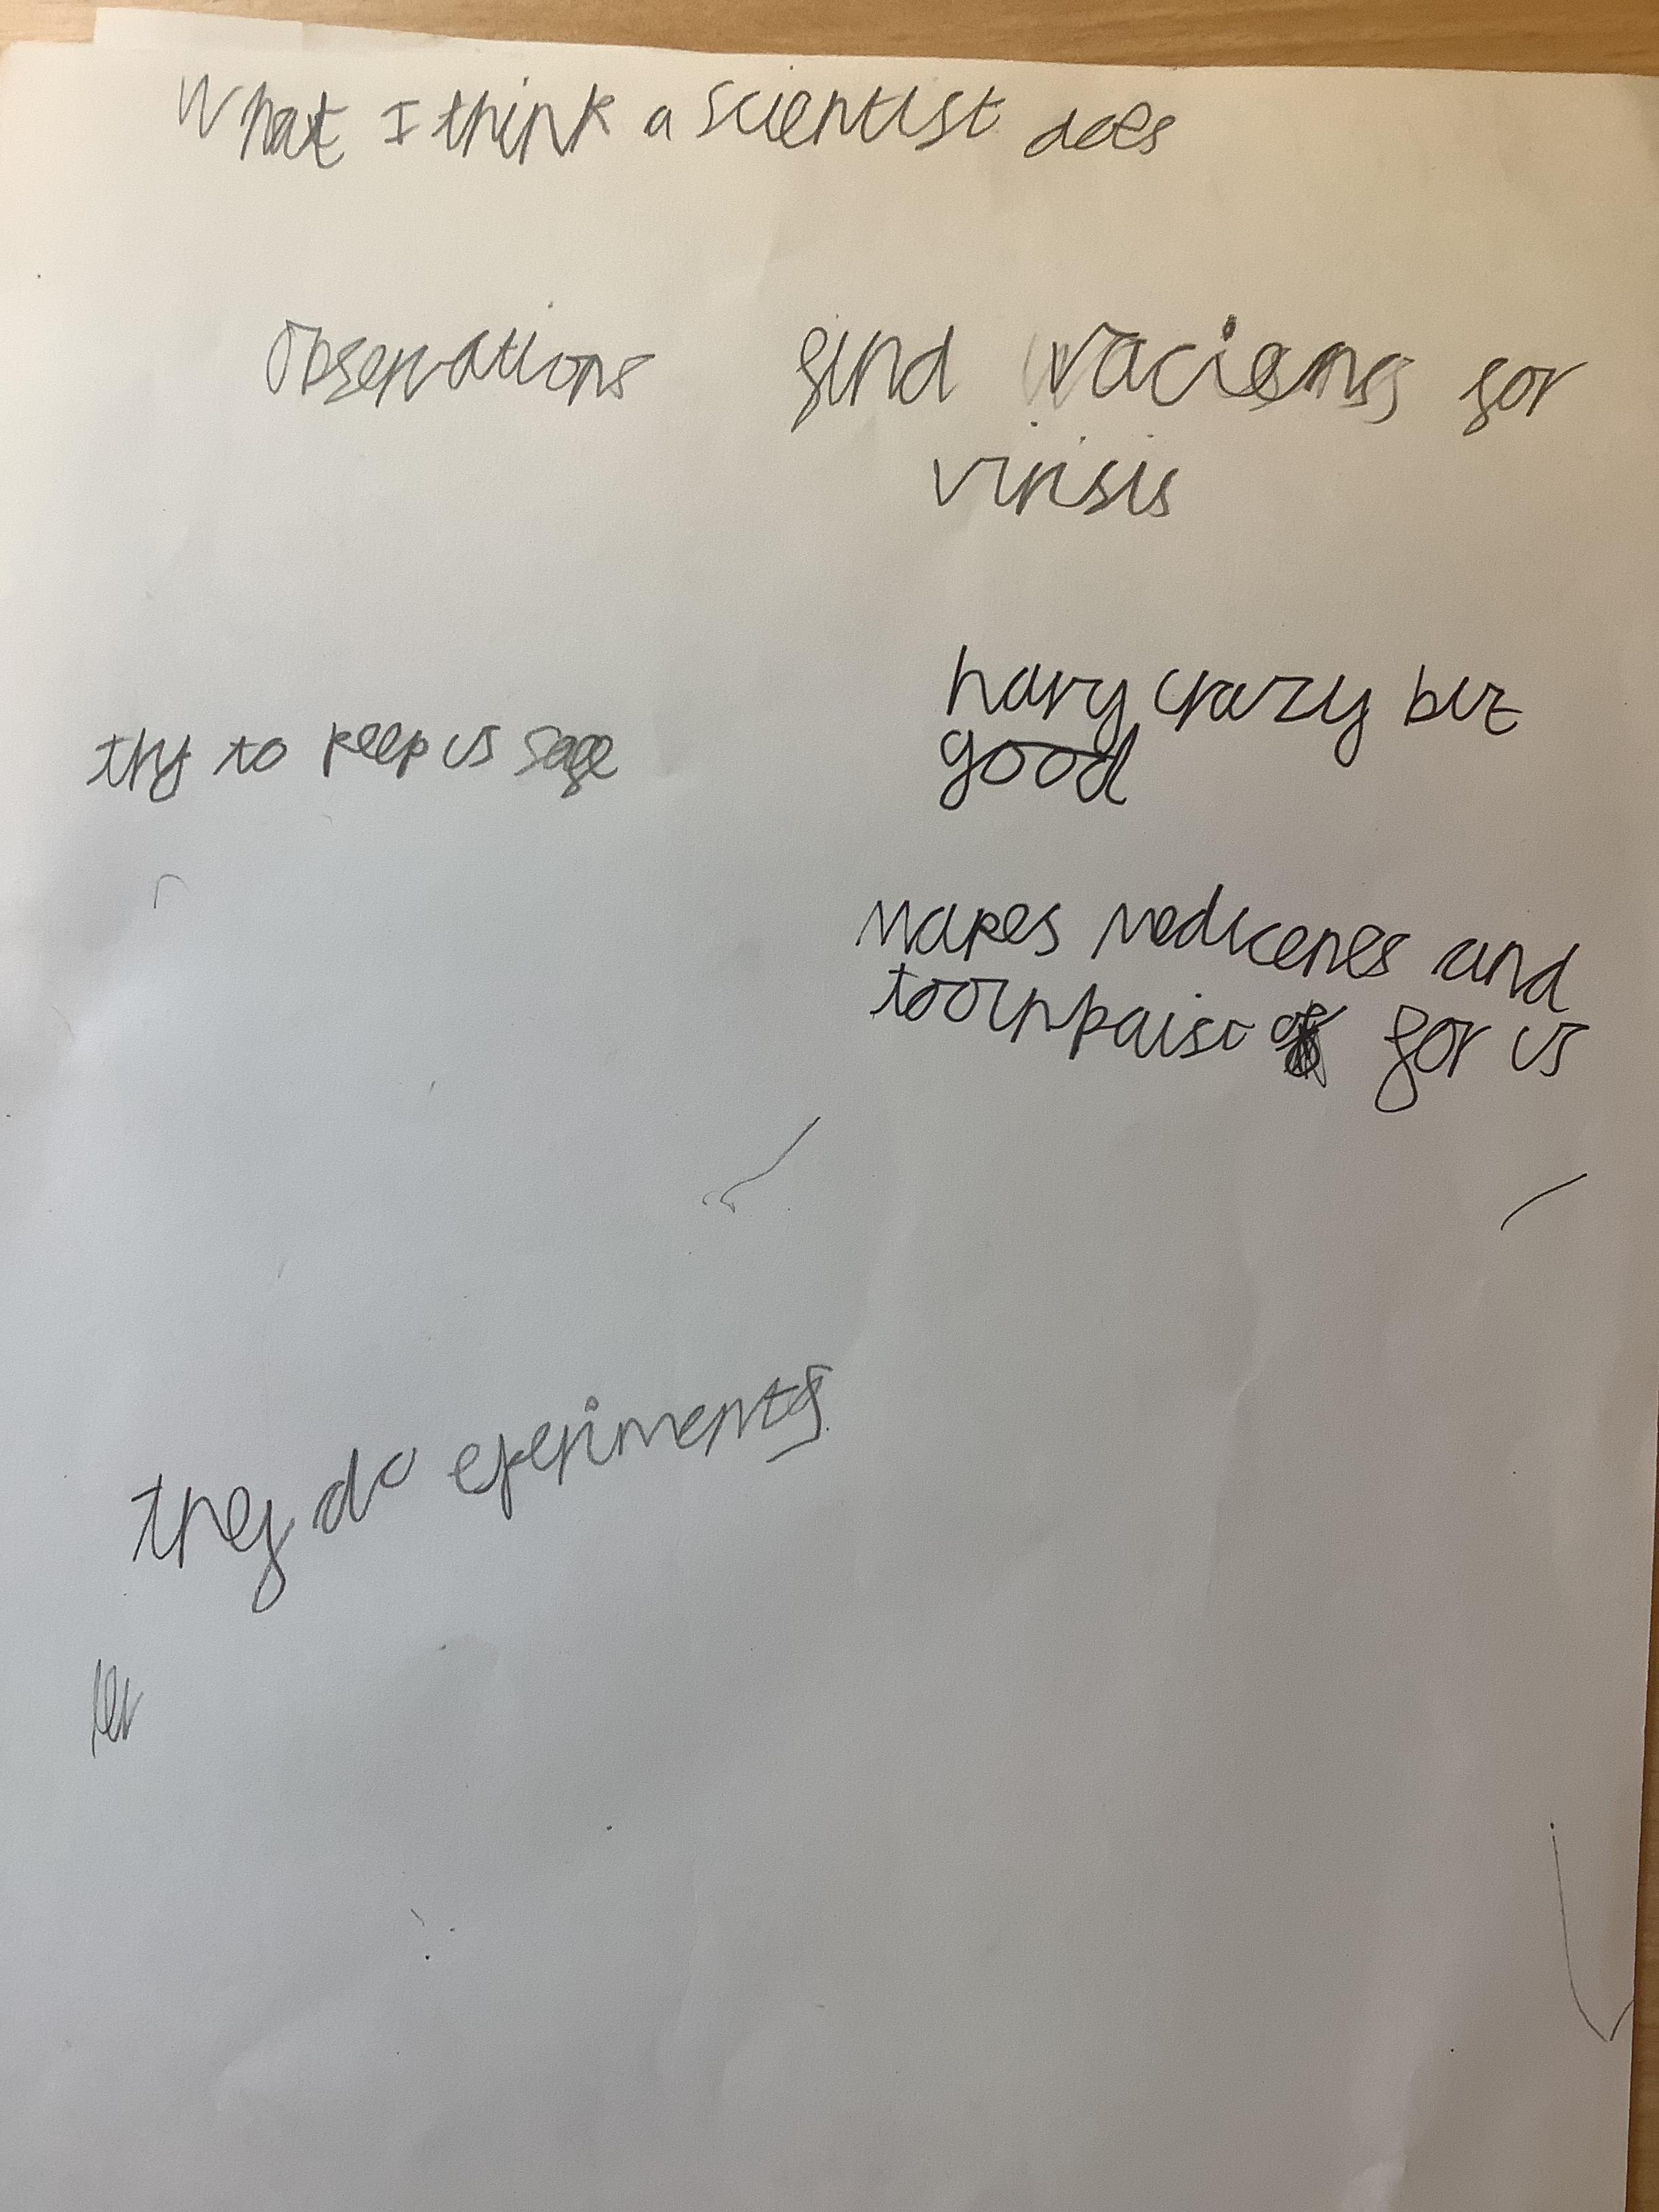 What I think a scientist does
Observations
find vaciens for
virisis
try to keep us safe
hary crazy but
good
makes medicenes and
toothpaist for us
they do eperiments